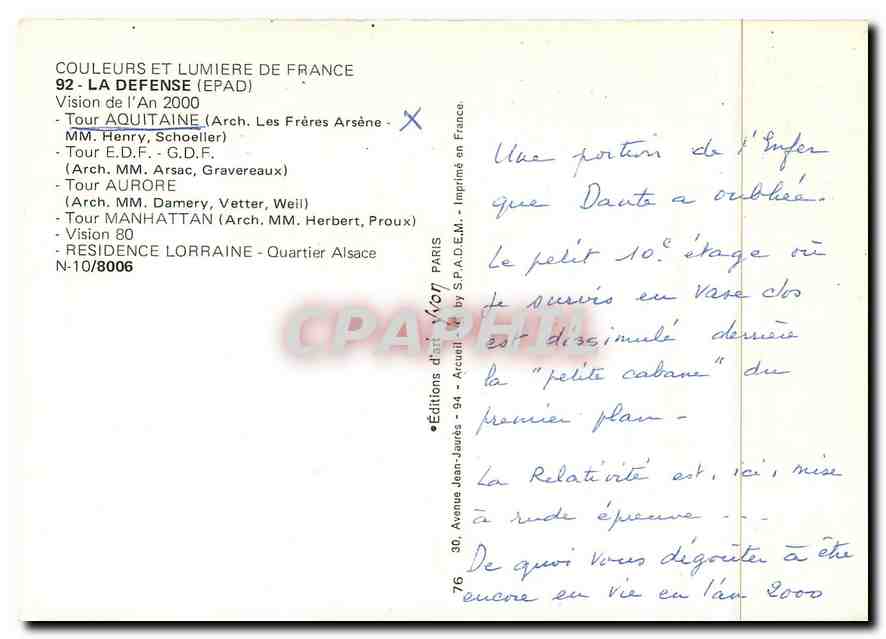 COULEURS ET LUMIERE DE FRANCE
92 - LA DEFENSE (EPAD)
Vision de l'An 2000
- Tour AQUITAINE (Arch. Les Frères Arsène -
MM. Henry, Schoeller)
- Tour E.D.F. - G.D.F.
(Arch. MM. Arsac, Gravereaux)
- Tour AURORE
(Arch. MM. Damery, Vetter, Weil)
- Tour MANHATTAN (Arch. MM. Herbert, Proux)
- Vision 80
- RESIDENCE LORRAINE - Quartier Alsace
N-10/8006
X
•Éditions d'art Yvon PARIS
76 30, Avenue Jean-Jaurès - 94 - Arcueil - by S.P.A.D.E.M. - Imprimé en France.
CPAPHIL
Une portion de l'Enfer
que Dante a oubliée.
Le petit 10e étage où
je survis en vase clos
est dissimulé derrière
la "petite cabane" du
premier plan -
La Relativité est, ici, mise
à rude épreuve ---
De quoi vous dégoûter à être
encore en vie en l'an 2000